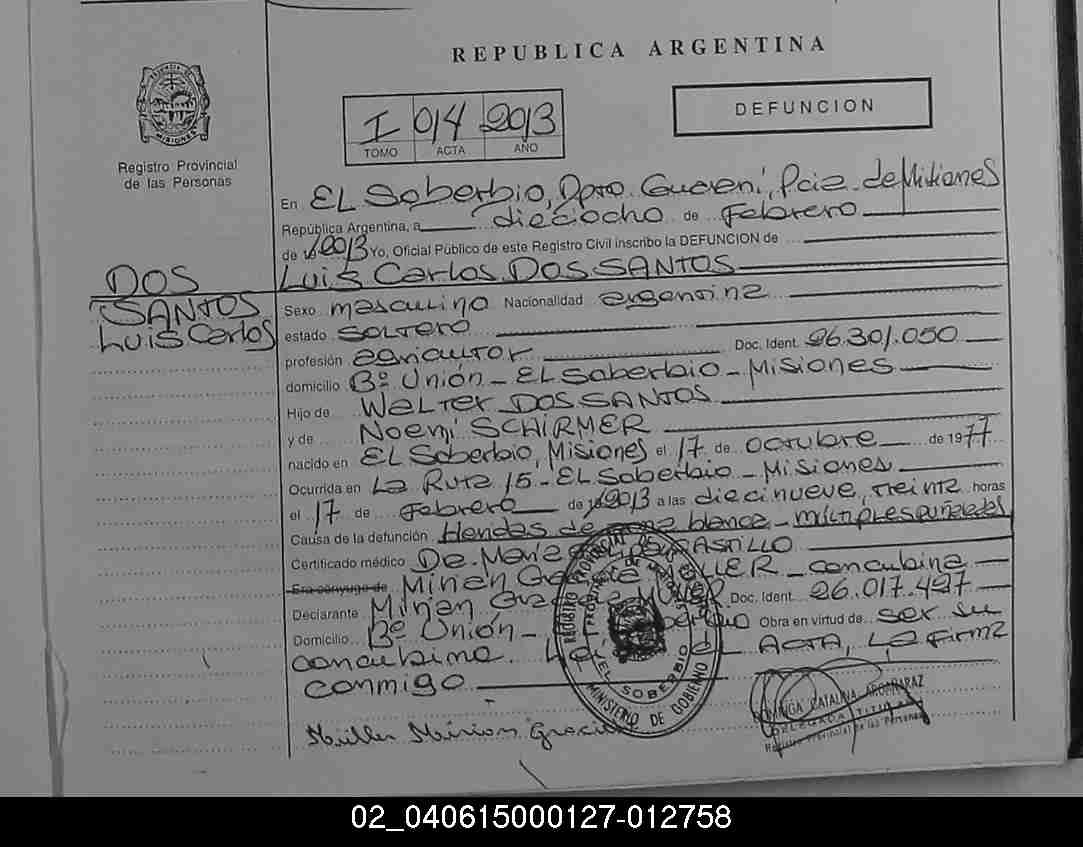 REPUBLICA ARGENTINA
DEFUNCION
I 014 2013
TOMO ACTA AÑO
Registro Provincial
de las Personas
En EL Soberbio, Dpto. Guaraní, Pcia. de Misiones
República Argentina, a dieciocho de Febrero
de 2013 Yo, Oficial Público de este Registro Civil inscribo la DEFUNCION de
DOS SANTOS Luis Carlos
Luis Carlos DOS SANTOS
Sexo masculino Nacionalidad argentina
estado soltero
profesión Doc. Ident. 26.301.050
domicilio Bº Unión - EL Soberbio - Misiones
Hijo de WALTER DOS SANTOS
y de Noemí SCHIRMER
nacido en EL Soberbio, Misiones el 17 de octubre de 1977
Ocurrida en La Ruta 15 - EL Soberbio - Misiones
el 17 de Febrero de 2013 a las diecinueve, treinta horas
Causa de la defunción Heridas de arma blanca - múltiples puñaladas
Certificado médico
Era cónyuge de concubina
Declarante Doc. Ident. 26.017.497
Domicilio Bº Unión - Obra en virtud de ser su
concubina. ACTA, La Firma
conmigo
Miriam
DOMINGA CATALINA
DELEGADA TITULAR
Registro Provincial de las Personas
REGISTRO PROVINCIAL DE
EL SOBERBIO
MINISTERIO DE GOBIERNO
02_040615000127-012758